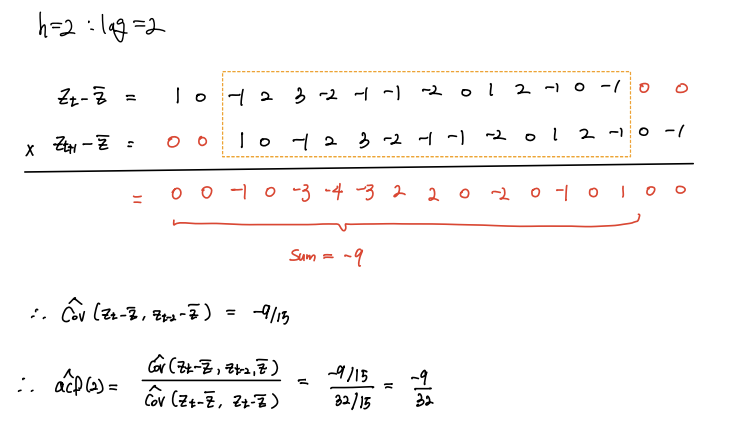 h=2 : lag=2
Zt - Z̄ = 1 0 -1 2 3 -2 -1 -1 -2 0 1 2 -1 0 -1 0 0
x Zt+1 - Z̄ = 0 0 1 0 -1 2 3 -2 -1 -1 -2 0 1 2 -1 0 -1
= 0 0 -1 0 -3 -4 -3 2 2 0 -2 0 -1 0 1 0 0
Sum = -9
∴ Ĉov (Zt-Z̄, Zt-2-Z̄) = -9/15
∴ acf̂(2) = Ĉov(Zt-Z̄, Zt-2, Z̄) / Ĉov(Zt-Z̄, Zt-Z̄) = -9/15 / 32/15 = -9/32